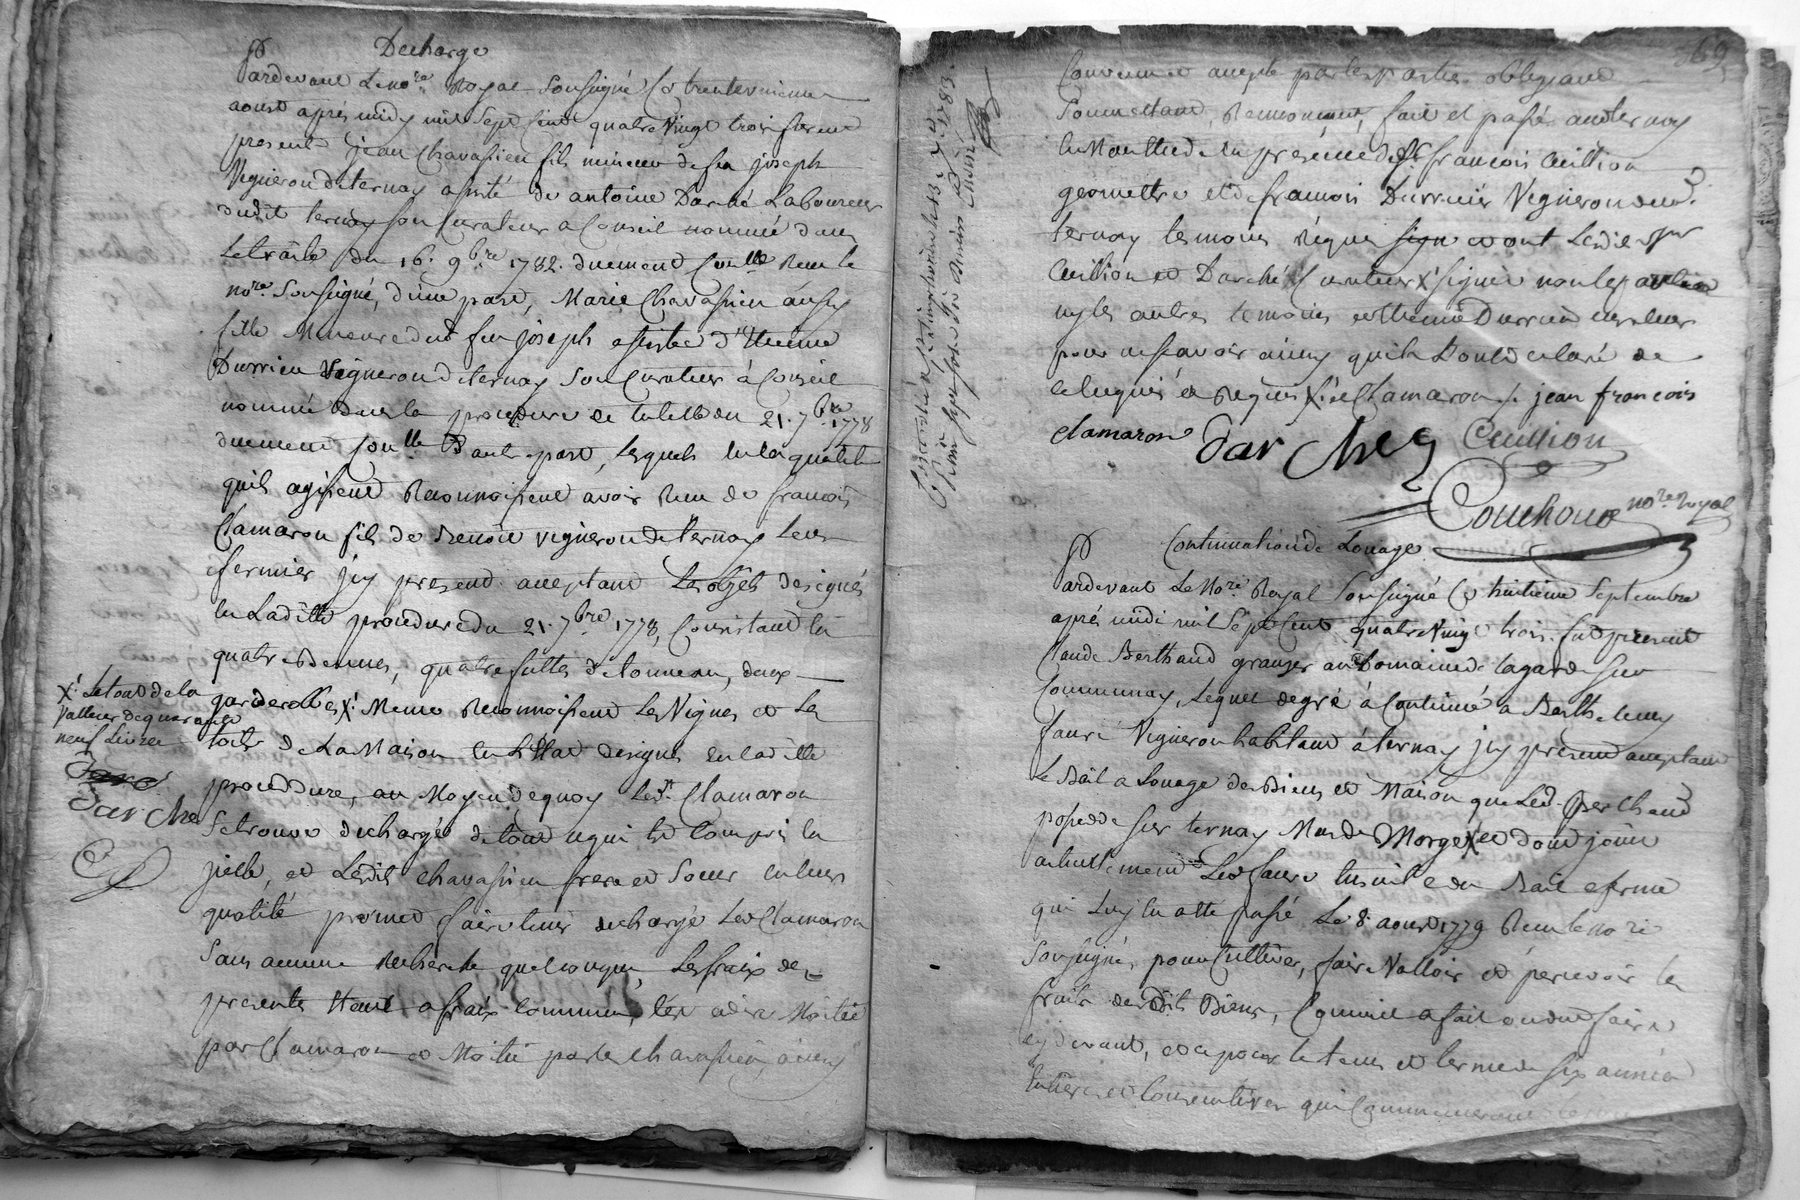 Decharge
Pardevant le no.re Royal Soussigné Et trente unieme
aoust aprés midy mil Sept Cent quatre Vingt trois furent
present jean Chavassieu fils mineur de feu joseph
Vigneron de ternay assisté de antoine Darché Laboureur
dudit ternay son Curateur a Conseil nommé dans
Le traité du 16. 9.bre 1782. duement Con.llé Reçu le
no.re Soussigné, d'une part, Marie Chavassieu aussy
fille Mineure dud feu joseph assistée d'Etienne
Durrieu Vigneron de ternay Son Curateur à Conseil
nommé dans la procedure de tutelle du 21. 7.bre 1778
duement Con.llé D'autre part, Lesquels en la qualité
quils agissent Reconnoissent avoir Reçu de francois
Clamaron fils de Benoit vigneron de ternay leur
fermier jcy present acceptant Les objets designés
en Laditte procedure du 21. 7.bre 1778, Consistant en
quatre Bennes, quatre futtes de tonneau, deux
garderobbes X. Meme Reconnoissent Les Vignes et Les
toits de La Maison en L'Etat designé en laditte
procedure, au Moyen de quoy Led.t Clamaron
Se trouve dechargé de tout ce qui est Compris en
jcelle, et Lesdits Chavassieu frere et Soeur en leur
qualité promet faire tenir dechargé Led Clamaron
Sans aucune Recherche quelconque, Les fraix de
presente Etant a fraix Communs, C'est adire Moitié
par Clamaron et Moitié par les Chavassieu, ainsy
X. Le tout de la
Valleur de quarante
neuf Livres
Darché
Convenu et accepté par les parties obligeant
Soumettant, Renonçant, fait et passé audternay
en Nostre Etude en presence de Sr. francois Cuillion
geomettre et de francois Durrieu Vigneron dud.
ternay temoins Requis Sign et ont Lesdits Sr.
Cuillion et Darché Curateur X Signé non les parties
ny les autres temoins et Etienne Durrieu Curateur
pour ne Scavoir ainsy quils L'ont declaré de
ce Enquis et Requis X. et Clamaron /. jean francois
clamaron Darché Cuillion
Couchoud no.re Royal
Continuation de Louage
Pardevant Le No.re Royal Soussigné Et huitieme Septembre
aprés midi mil Sept Cent quatre Vingt trois fut present
Claude Berthaud granger au Domaine de Lagarde sur
Communay, Lequel de gré à Continué a Barthelemy
fauré Vigneron habitant à ternay jcy present acceptant
Le Bail a Louage des Biens et Maison que Led. Berthaud
possede sur ternay Mas de Morge X et dont jouit
actuellement Led faure Ensuite du Bail a ferme
qui Luy en a eté passé Le 8. aoust 1779 Reçu le no.re
Soussigné, pour Cultiver, faire Valloir et percevoir les
fruits desdits Biens, Comme il a fait ou du faire
cy devant, et ce pour le tems et terme de six années
Entieres et Consecutives qui Commenceront